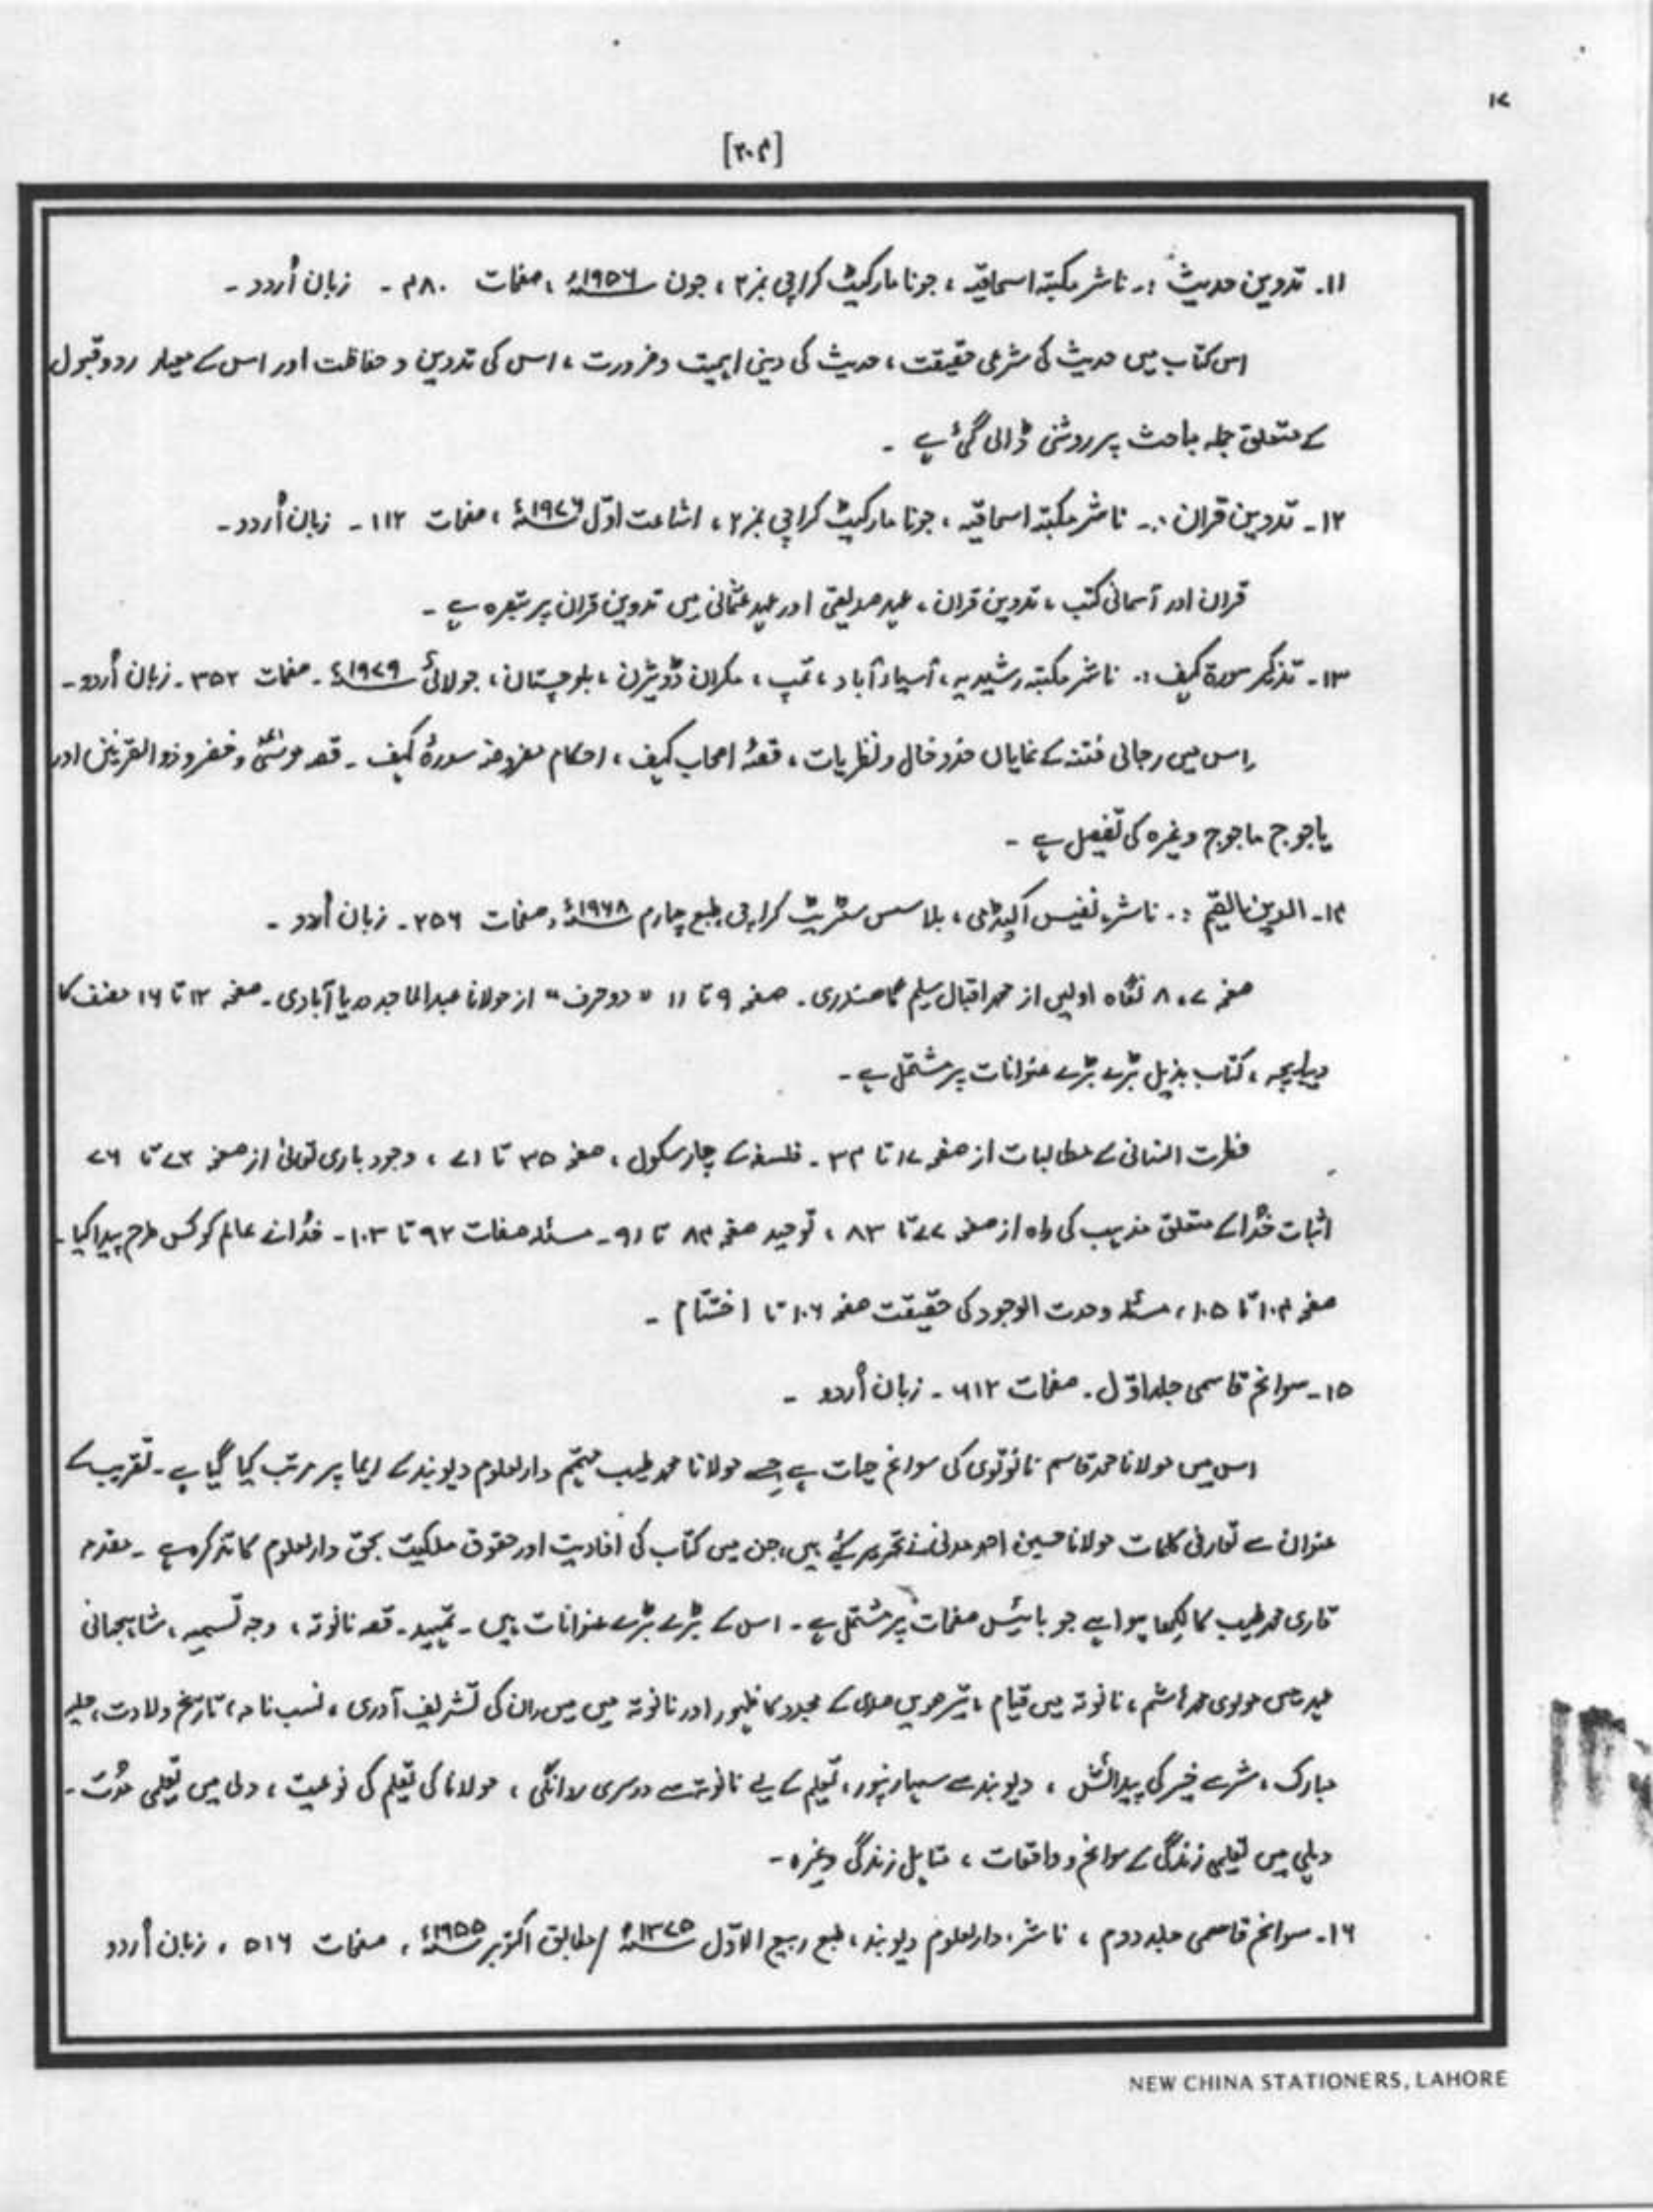 ۱۷
[۲۰۴]
۱۱۔ تدوین حدیث :۔ ناشر مکتبہ اسحاقیہ ، جونا مارکیٹ کراچی نمبر ۲ ، جون ۱۹۵۶ء ، صفحات ۴۸۰ ۔ زبان اُردو ۔
اس کتاب میں حدیث کی شرعی حقیقت ، حدیث کی دینی اہمیت و ضرورت ، اس کی تدوین و حفاظت اور اس کے معیار رد و قبول
کے متعلق جملہ مباحث پر روشنی ڈالی گئی ہے ۔
۱۲۔ تدوین قران :۔ ناشر مکتبہ اسحاقیہ ، جونا مارکیٹ کراچی نمبر ۲ ، اشاعت اوّل ۱۹۷۶ء ، صفحات ۱۱۲ ۔ زبان اُردو ۔
قران اور آسمانی کتب ، تدوین قران ، عہد صدیقی اور عہد عثمانی میں تدوین قران پر تبصرہ ہے ۔
۱۳۔ تذکیر سورۃ کہف :۔ ناشر مکتبہ رشیدیہ ، آسیاد آباد ، تمپ ، مکران ڈویژن ، بلوچستان ، جولائی ۱۹۷۹ء ۔ صفحات ۳۵۲ ۔ زبان اُردو ۔
اس میں دجالی فتنہ کے نمایاں خدوخال و نظریات ، قصۂ اصحاب کہف ، احکام مفروضہ سورۂ کہف ۔ قصہ موسیٰؑ و خضر و ذوالقرنین اور
یاجوج ماجوج وغیرہ کی تفصیل ہے ۔
۱۴۔ الدین القیم :۔ ناشر نفیس اکیڈمی ، بلاسس سٹریٹ کراچی طبع چہارم ۱۹۶۸ء ، صفحات ۲۵۶ ۔ زبان اُردو ۔
صفحہ ۷ ، ۸ نگاہ اولیں از محمد اقبال سلیم گاھندری ۔ صفحہ ۹ تا ۱۱ " دو حرف " از مولانا عبدالماجد دریا آبادی ۔ صفحہ ۱۲ تا ۱۶ مصنف کا
دیباچہ ، کتاب بذیل بڑے بڑے عنوانات پر مشتمل ہے ۔
فطرت انسانی کے مطالبات از صفحہ ۱۷ تا ۳۴ ۔ فلسفہ کے چار سکول ، صفحہ ۳۵ تا ۷۱ ، وجود باری تعالیٰ از صفحہ ۷۲ تا ۷۶
اثبات خُدا کے متعلق مذہب کی راہ از صفحہ ۷۷ تا ۸۳ ، توحید صفحہ ۸۴ تا ۹۱ ۔ مسئلہ صفات ۹۲ تا ۱۰۳ ۔ خُدا نے عالم کو کس طرح پیدا کیا ۔
صفحہ ۱۰۴ تا ۱۰۵ ، مسئلہ وحدت الوجود کی حقیقت صفحہ ۱۰۶ تا اختتام ۔
۱۵۔ سوانح قاسمی جلد اوّل ۔ صفحات ۶۱۲ ۔ زبان اُردو ۔
اس میں مولانا محمد قاسم نانوتوی کی سوانح حیات ہے جسے مولانا محمد طیب مہتمم دارالعلوم دیوبند کے ایما پر مرتب کیا گیا ہے ۔ تقریب کے
عنوان سے تعارفی کلمات مولانا حسین احمد مدنی نے تحریر کئے ہیں ، جن میں کتاب کی افادیت اور حقوق ملکیت بحق دارالعلوم کا تذکرہ ہے ۔ مقدمہ
قاری محمد طیب کا لکھا ہوا ہے جو بائیس صفحات پر مشتمل ہے ۔ اس کے بڑے بڑے عنوانات ہیں ۔ تمہید ۔ قصہ نانوتہ ، وجہ تسمیہ ، شاہجہانی
عہد میں مولوی محمد ہاشم ، نانوتہ میں قیام ، تیرھویں صدی کے مجدد کا ظہور اور نانوتہ میں میں ان کی تشریف آوری ، نسب نامہ ، تاریخ ولادت ، حلیہ
مبارک ، شر سے خیر کی پیدائش ، دیوبند سے سہارنپور ، تعلیم کے لیے نانوتہ سے دوسری روانگی ، مولانا کی تعلیم کی نوعیت ، دلی میں تعلیمی مُدت ۔
دہلی میں تعلیمی زندگی کے سوانح و واقعات ، متاہل زندگی وغیرہ ۔
۱۶۔ سوانح قاسمی جلد دوم ، ناشر ، دارالعلوم دیوبند ، طبع ربیع الاوّل ۱۳۷۵ھ / مطابق اکتوبر ۱۹۵۵ء ، صفحات ۵۱۶ ، زبان اُردو
NEW CHINA STATIONERS, LAHORE